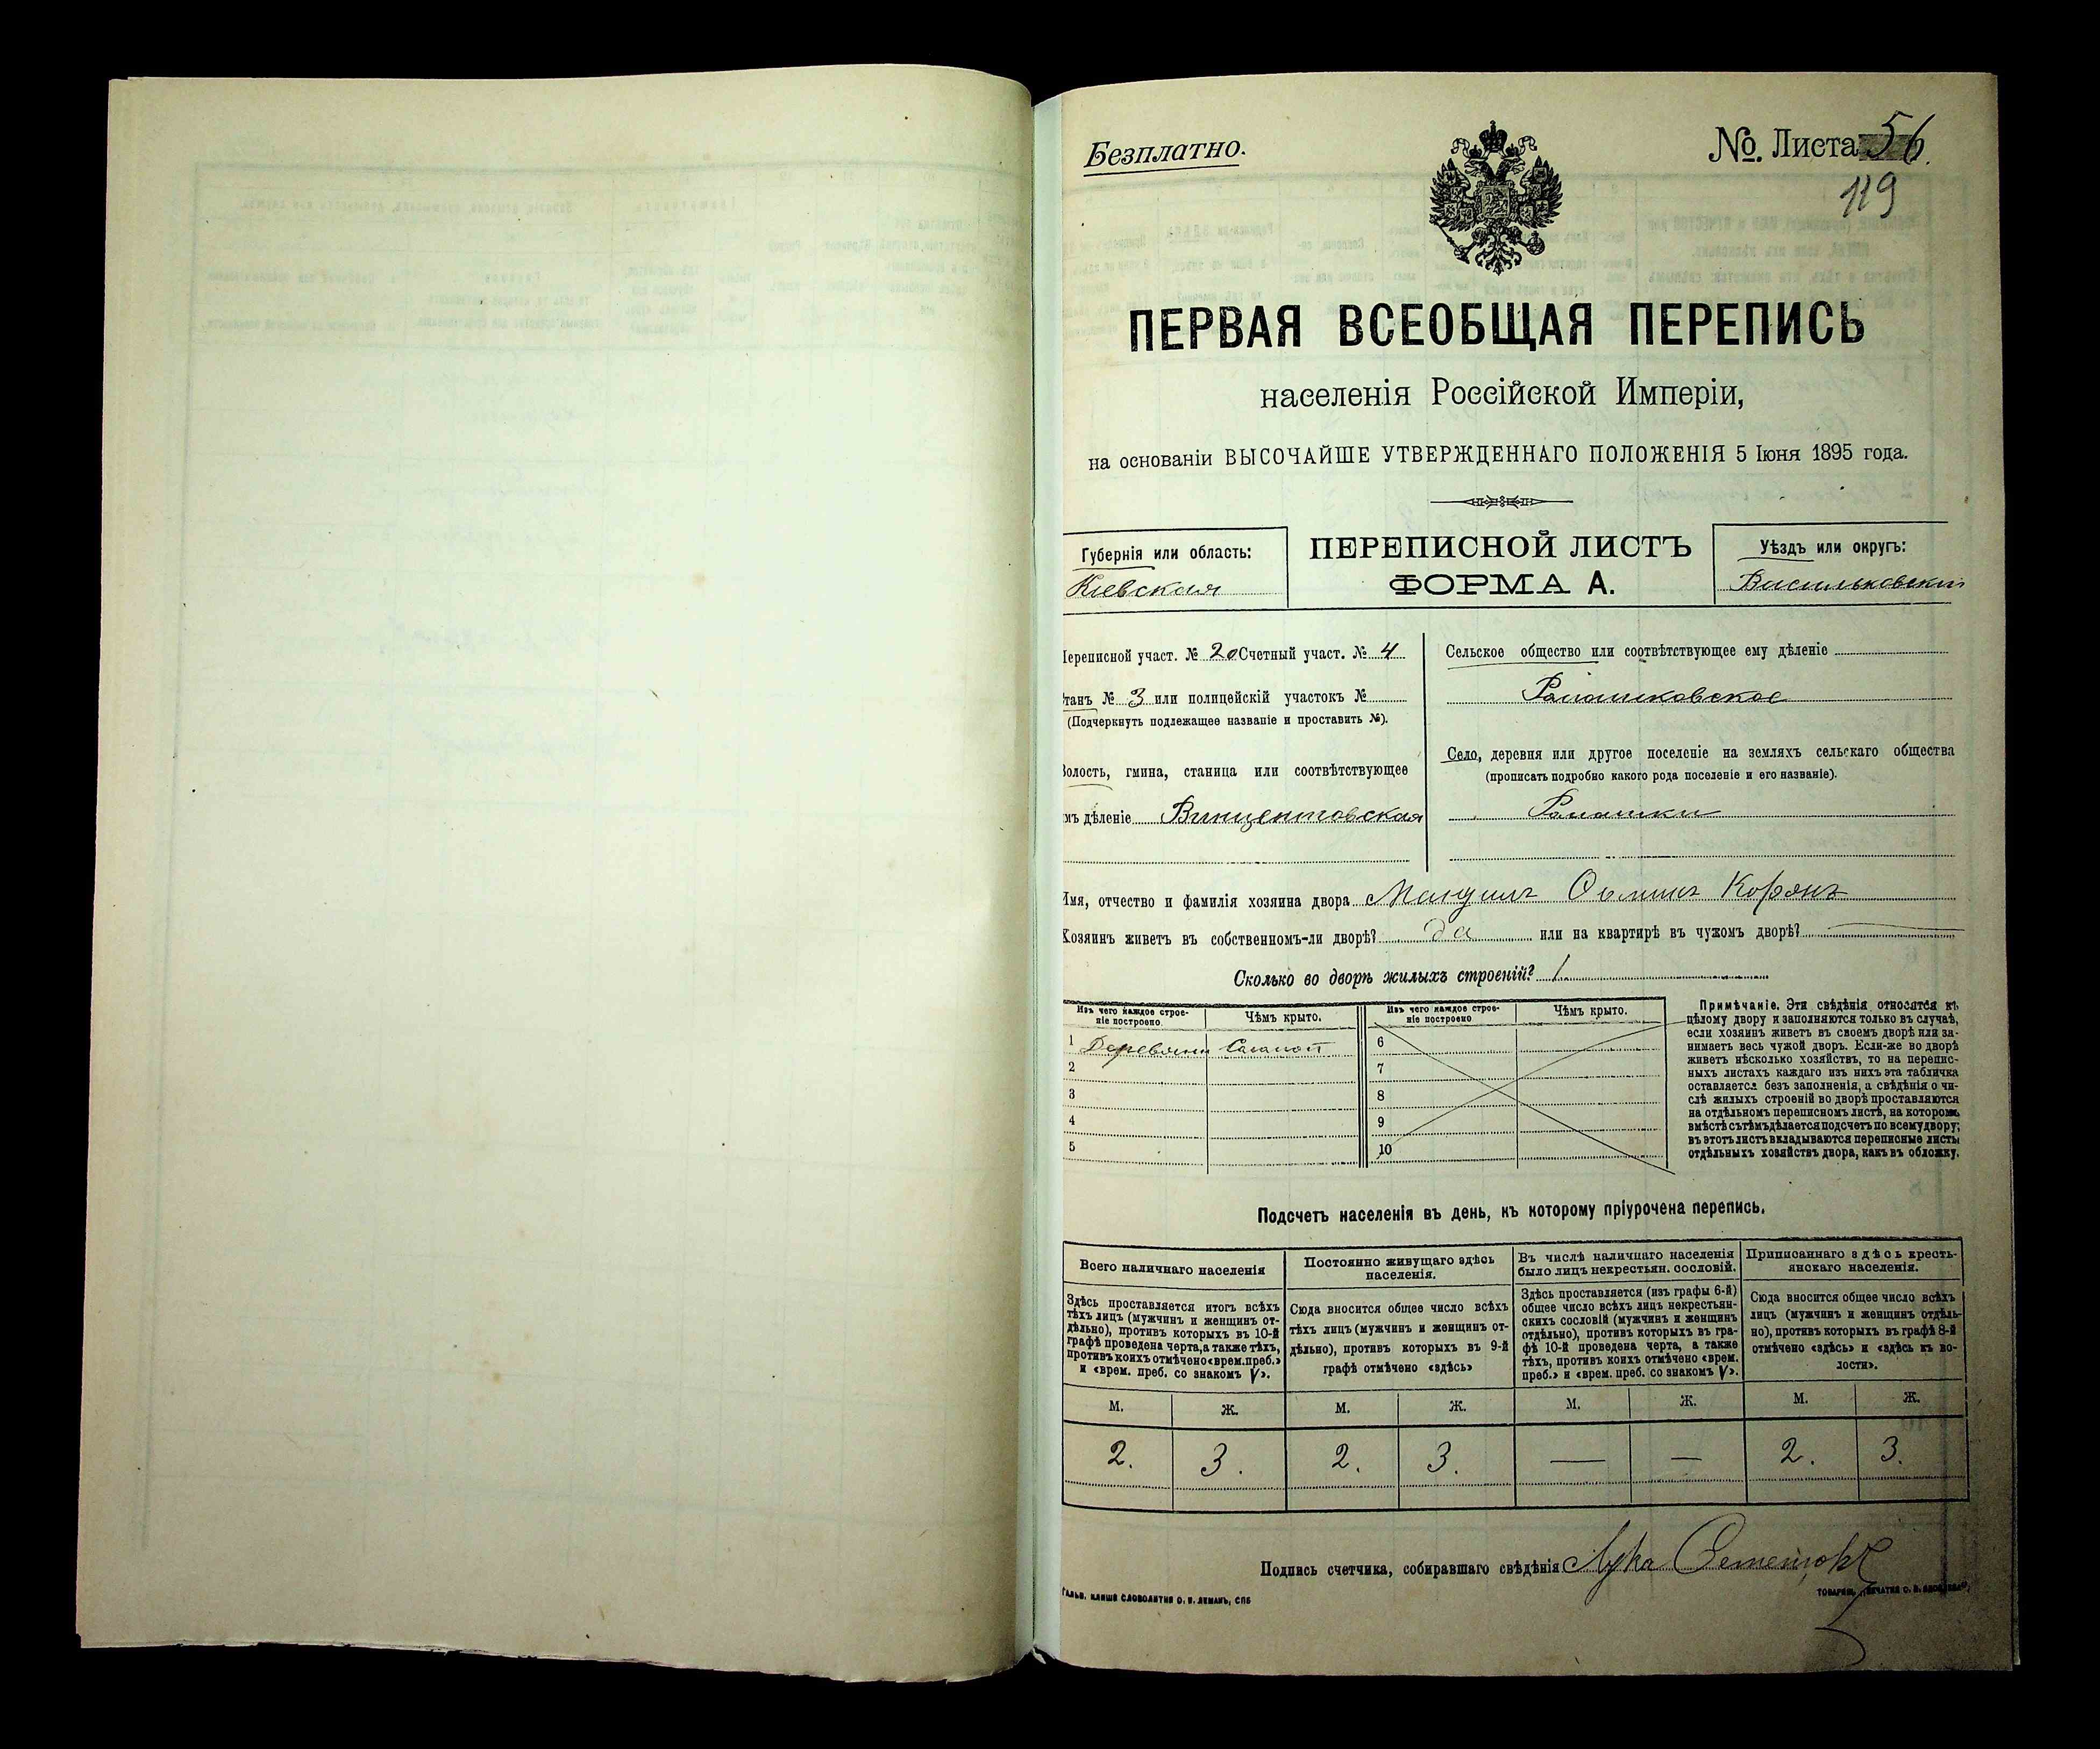 Безплатно.
№. Листа 56.
119
ПЕРВАЯ ВСЕОБЩАЯ ПЕРЕПИСЬ
населенія Россійской Имперіи,
на основаніи ВЫСОЧАЙШЕ УТВЕРЖДЕННАГО ПОЛОЖЕНІЯ 5 Іюня 1895 года.
Губернія или область:
Кіевская
ПЕРЕПИСНОЙ ЛИСТЪ
ФОРМА А.
Уѣздъ или округъ:
Васильковскій
Переписной участ. № 20 Счетный участ. № 4
Станъ № 3 или полицейскій участокъ №
(Подчеркнуть подлежащее названіе и проставить №).
Волость, гмина, станица или соотвѣтствующее
имъ дѣленіе Винцентовская
Сельское общество или соотвѣтствующее ему дѣленіе
Ромашковское
Село, деревня или другое поселеніе на земляхъ сельскаго общества
(прописать подробно какого рода поселеніе и его названіе).
Ромашки
Имя, отчество и фамилія хозяина двора
Хозяинъ живетъ въ собственномъ-ли дворѣ? да или на квартирѣ въ чужомъ дворѣ?
Сколько во дворѣ жилыхъ строеній? 1
Изъ чего каждое строе-
ніе построено
Чѣмъ крыто.
Изъ чего каждое строе-
ніе построено
Чѣмъ крыто.
1 Деревянн Соломой
2
3
4
5
6
7
8
9
10
Примѣчаніе. Эти свѣдѣнія относятся къ
цѣлому двору и заполняются только въ случаѣ,
если хозяинъ живетъ въ своемъ дворѣ или за-
нимаетъ весь чужой дворъ. Если-же во дворѣ
живетъ нѣсколько хозяйствъ, то на перепис-
ныхъ листахъ каждаго изъ нихъ эта табличка
оставляется безъ заполненія, а свѣдѣнія о чи-
слѣ жилыхъ строеній во дворѣ проставляются
на отдѣльномъ переписномъ листѣ, на которомъ
вмѣстѣ съ тѣмъ дѣлается подсчетъ по всему двору;
въ этотъ листъ вкладываются переписные листы
отдѣльныхъ хозяйствъ двора, какъ въ обложку.
Подсчетъ населенія въ день, къ которому пріурочена перепись.
Всего наличнаго населенія
Постоянно живущаго здѣсь
населенія.
Въ числѣ наличнаго населенія
было лицъ некрестьян. сословій.
Приписаннаго здѣсь кресть-
янскаго населенія.
Здѣсь проставляется итогъ всѣхъ
тѣхъ лицъ (мужчинъ и женщинъ от-
дѣльно), противъ которыхъ въ 10-й
графѣ проведена черта, а также тѣхъ,
противъ коихъ отмѣчено «врем. преб.»
и «врем. преб. со знакомъ V».
Сюда вносится общее число всѣхъ
тѣхъ лицъ (мужчинъ и женщинъ от-
дѣльно), противъ которыхъ въ 9-й
графѣ отмѣчено «здѣсь»
Здѣсь проставляется (изъ графы 6-й)
общее число всѣхъ лицъ некрестьян-
скихъ сословій (мужчинъ и женщинъ
отдѣльно), противъ которыхъ въ гра-
фѣ 10-й проведена черта, а также
тѣхъ, противъ коихъ отмѣчено «врем.
преб.» и «врем. преб. со знакомъ V».
Сюда вносится общее число всѣхъ
лицъ (мужчинъ и женщинъ отдѣль-
но), противъ которыхъ въ графѣ 8-й
отмѣчено «здѣсь» и «здѣсь къ во-
лости».
М. Ж. М. Ж. М. Ж. М. Ж.
2. 3. 2. 3. — — 2. 3.
Подпись счетчика, собиравшаго свѣдѣнія Лука
Гальв. клише словолитни О. И. Леманъ, СПБ